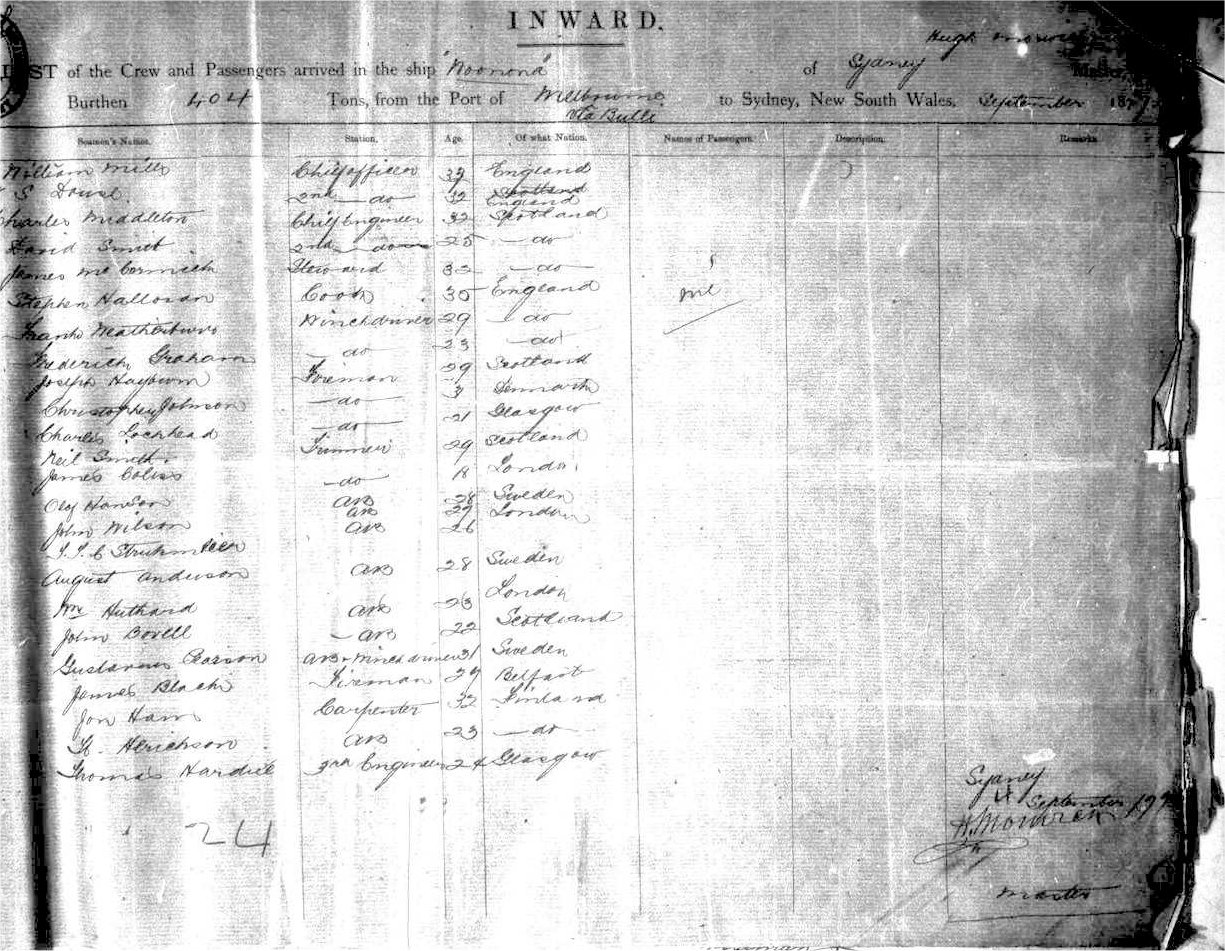 INWARD.
Hugh
LIST of the Crew and Passengers arrived in the ship "Woonona" of Sydney Master,
Burthen 404 Tons, from the Port of Melbourne to Sydney, New South Wales, September 187
via Bulli
Seamen's Names. Station. Age. Of what Nation. Names of Passengers. Description. Remarks
William Mills Chief officer 39 England
S Dowse 2nd do 32 Scotland England
Charles Middleton Chief Engineer 32 Scotland
David Smith 2nd do 25 do
James McCormick Steward 32 do
Stephen Halloran Cook 35 England nil
Frank Winchdriver 29 do
Frederick Graham do 23 do
Joseph Hayburn Foreman 29 Scotland
Christopher Johnson do 3 Denmark
Charles Lockhead do 21 Glasgow
Neil Smith Trimmer 29 Scotland
James do 18 London
Olof Hanson AB 28 Sweden
John Wilson AB 27 London
AB 26
August Anderson AB 28 Sweden
Wm AB 23 London
John Bovell AB 22 Scotland
Gustavus Pearson AB + Winchdriver 31 Sweden
James Black Fireman 27 Belfast
Jon Carpenter 32 Finland
AB 23 do
Thomas Hardie 3rd Engineer 24 Glasgow
24
Sydney
4 September 187
H.
Master